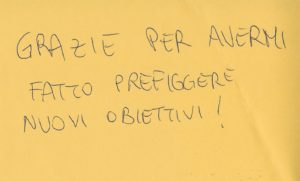 GRAZIE PER AVERMI
FATTO PREFIGGERE
NUOVI OBIETTIVI!